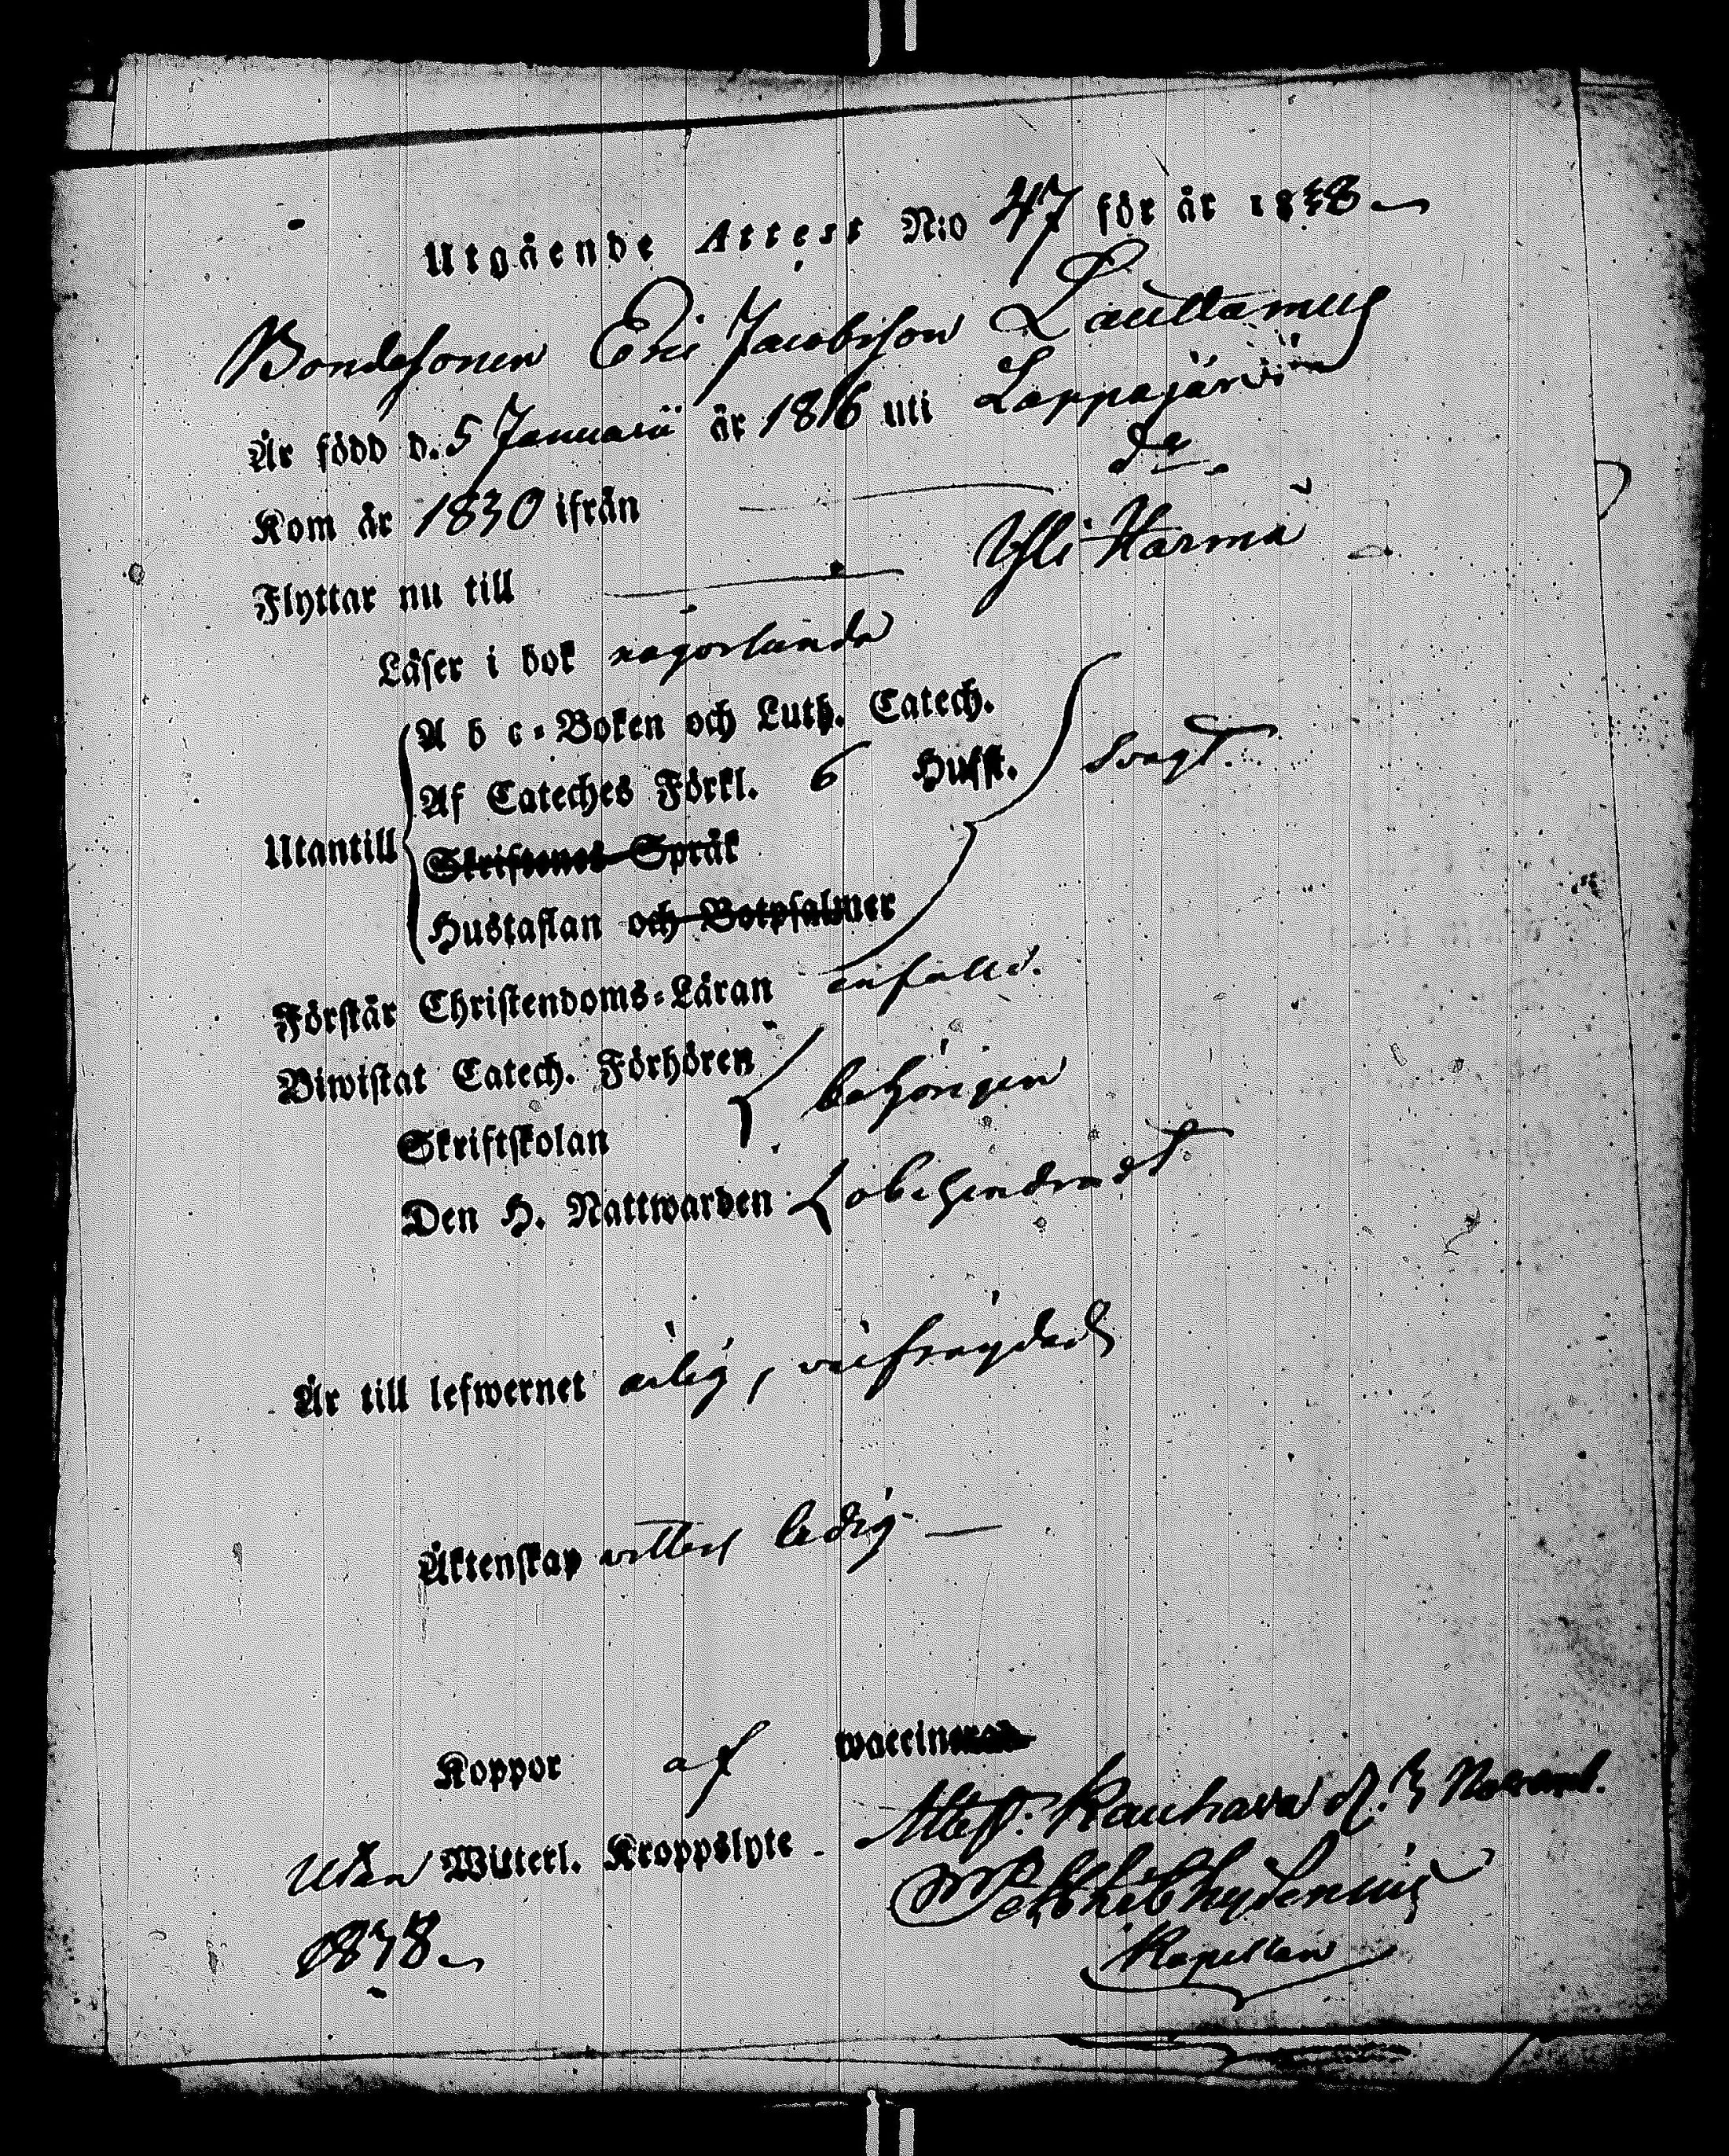 Utgående Attest N:o 47 för år 1838
Bondesonen Eric Jacobsson Lauttamus
Är född d. 5 Januarii år 1816 uti Lappajärvi
Kom år 1830 ifrån do
Flyttar nu till Ylihärmä
Läser i bok någorlunda
A b c-Boken och Luth. Catech.
Af Cateches Förkl. 6 Hufst. svagt.
Utantill
Skriftenes Språk
Hustaflan och Botpsalmer
Förstår Christendoms-Läran enfaldt.
Biwistat Catech. Förhören
behörigen
Skriftskolan
Den H. Nattwarden obehindradt
Är till lefwernet ärlig, välfrägdad
Äktenskap ledig
Koppor af waccinerad
Utan Witterl. Kroppslyte. Attest. Kauhava d. 3 Novemb.
1838.
Kapellan